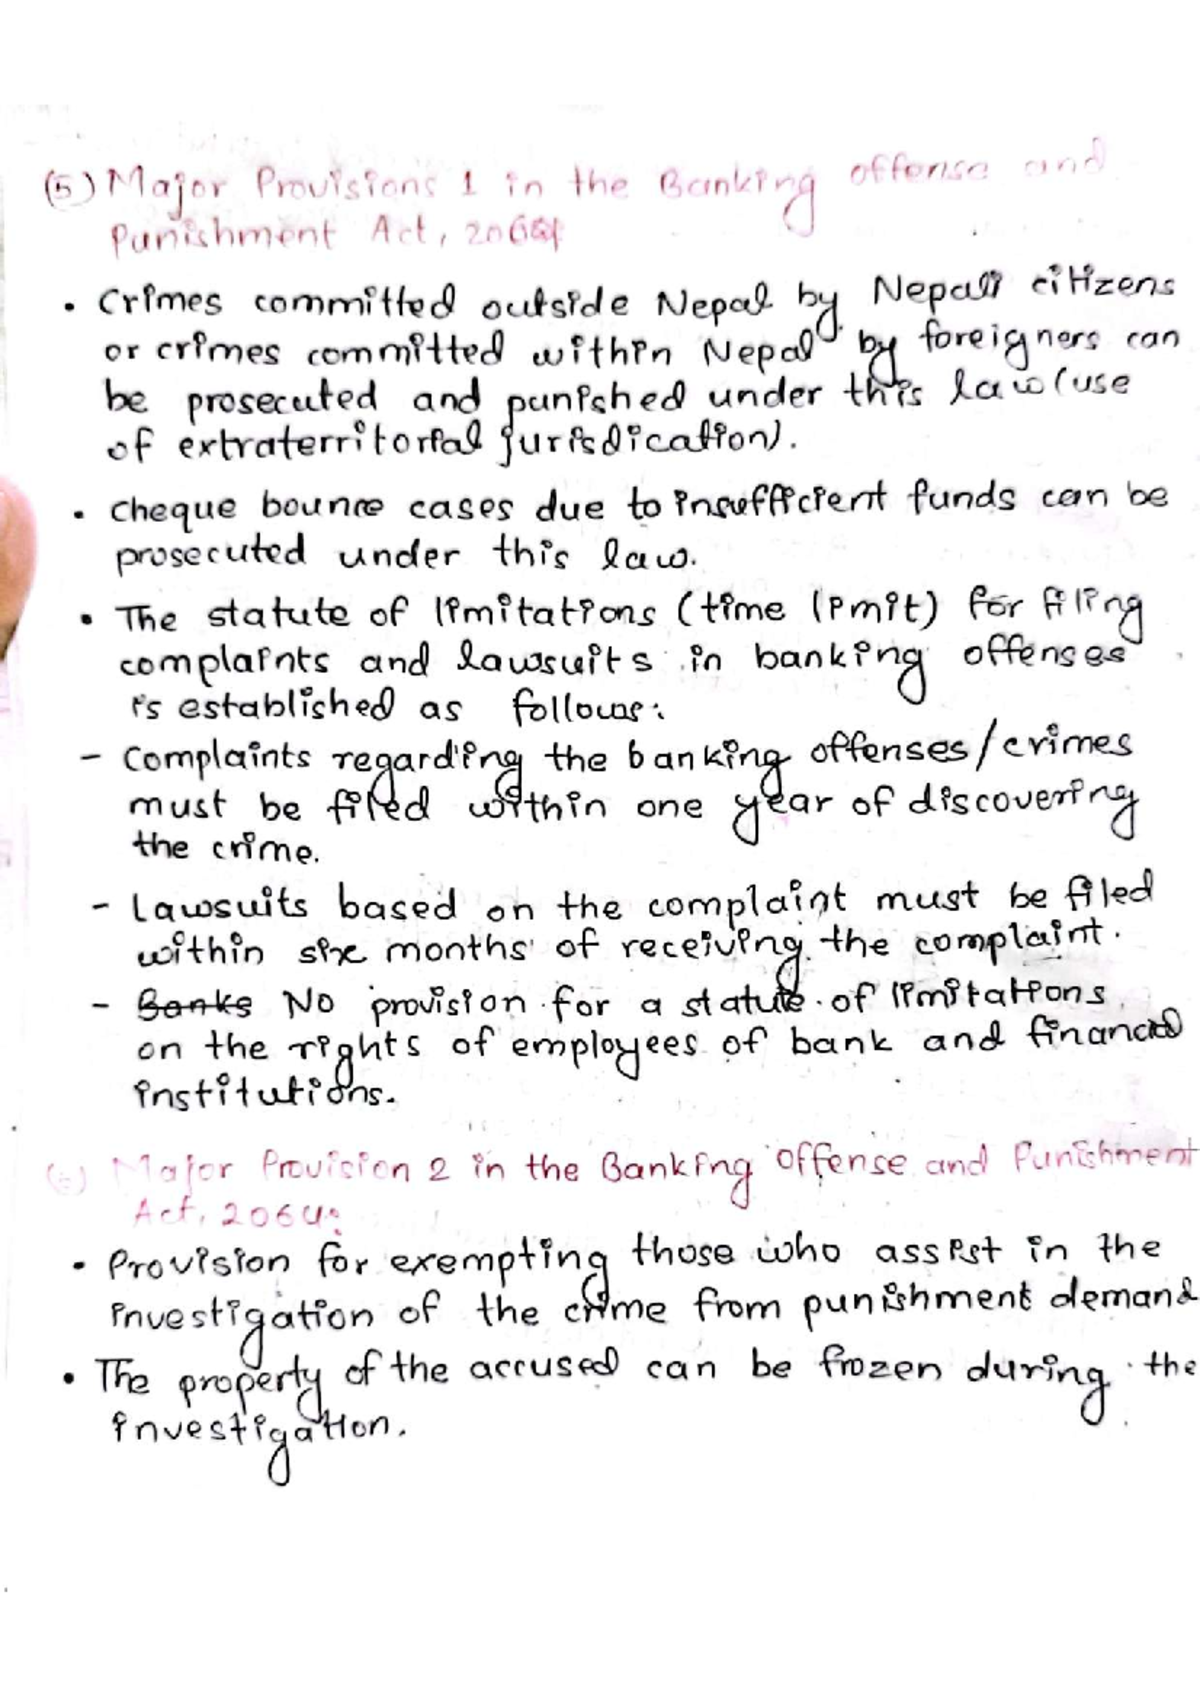 (5) Major Provisions 1 in the Banking offense and
Punishment Act, 2064
• Crimes committed outside Nepal by Nepali citizens
or crimes committed within Nepal by foreigners can
be prosecuted and punished under this law (use
of extraterritorial jurisdication).
• cheque bounce cases due to insufficient funds can be
prosecuted under this law.
• The statute of limitations (time limit) for filing
complaints and lawsuits in banking offenses
is established as follows:
- Complaints regarding the banking offenses/crimes
must be filed within one year of discovering
the crime.
- Lawsuits based on the complaint must be filed
within six months of receiving the complaint.
- Banks No provision for a statute of limitations
on the rights of employees of bank and financial
institutions.
Major Provision 2 in the Banking offense and Punishment
Act, 2064:
• Provision for exempting those who assist in the
investigation of the crime from punishment demand
• The property of the accused can be frozen during the
investigation.